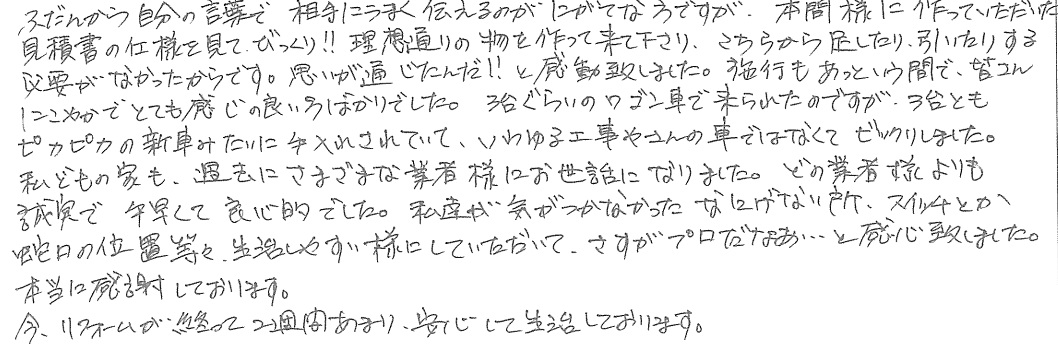 ふだんから自分の言葉で 相手にうまく伝えるのがにがてな方ですが、本間様に作っていただいた
見積書の仕様を見て、びっくり!! 理想通りの物を作って来て下さり、こちらから足したり、引いたりする
必要がなかったからです。思いが通じたんだ!! と感動致しました。施行もあっという間で、皆さん
にこやかでとても感じの良い方ばかりでした。3台ぐらいのワゴン車で来られたのですが、3台とも
ピカピカの新車みたいに手入れされていて、いわゆる工事やさんの車ではなくてビックリしました。
私どもの家も、過去にさまざまな業者様にお世話になりました。どの業者様よりも
誠実で 手早くて 良心的でした。私達が気がつかなかった なにげない所、スイッチとか
蛇口の位置等々、生活しやすい様にしていただいて、さすがプロだなあ…と感心致しました。
本当に感謝しております。
今、リフォームが終って2週間あまり、安心して生活しております。